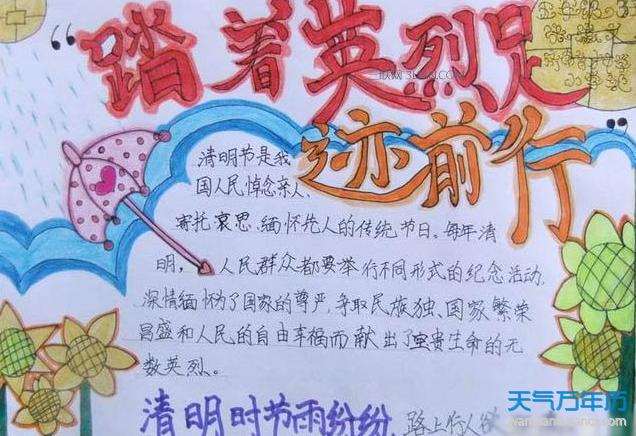 “踏着英烈足
迹前行”
清明节是我
国人民悼念亲人、
寄托哀思、缅怀先人的传统节日。每年清
明，人民群众都要举行不同形式的纪念活动,
深情缅怀为了国家的尊严,争取民族独、国家繁荣
昌盛和人民的自由幸福而献出了宝贵生命的无
数英烈。
清明时节雨纷纷,路上行人欲
天气万年历